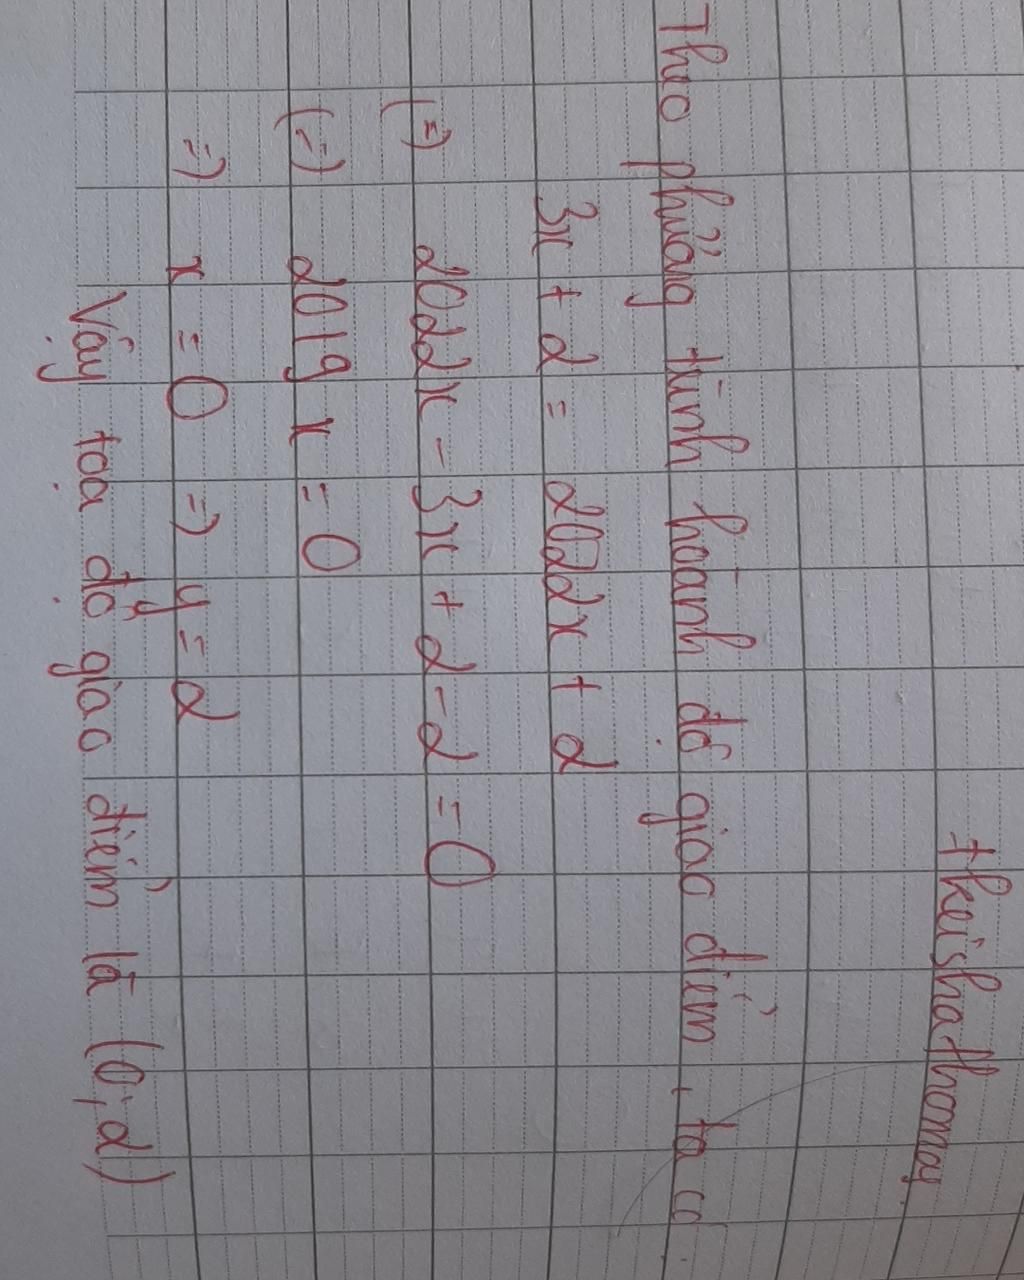 tkeishathomay
Theo phương trình hoành độ giao điểm, ta có:
3x + 2 = 2022x + 2
(=) 2022x - 3x + 2 - 2 = 0
(=) 2019x = 0
=) x = 0 =) y = 2
Vậy tọa độ giao điểm là (0; 2)